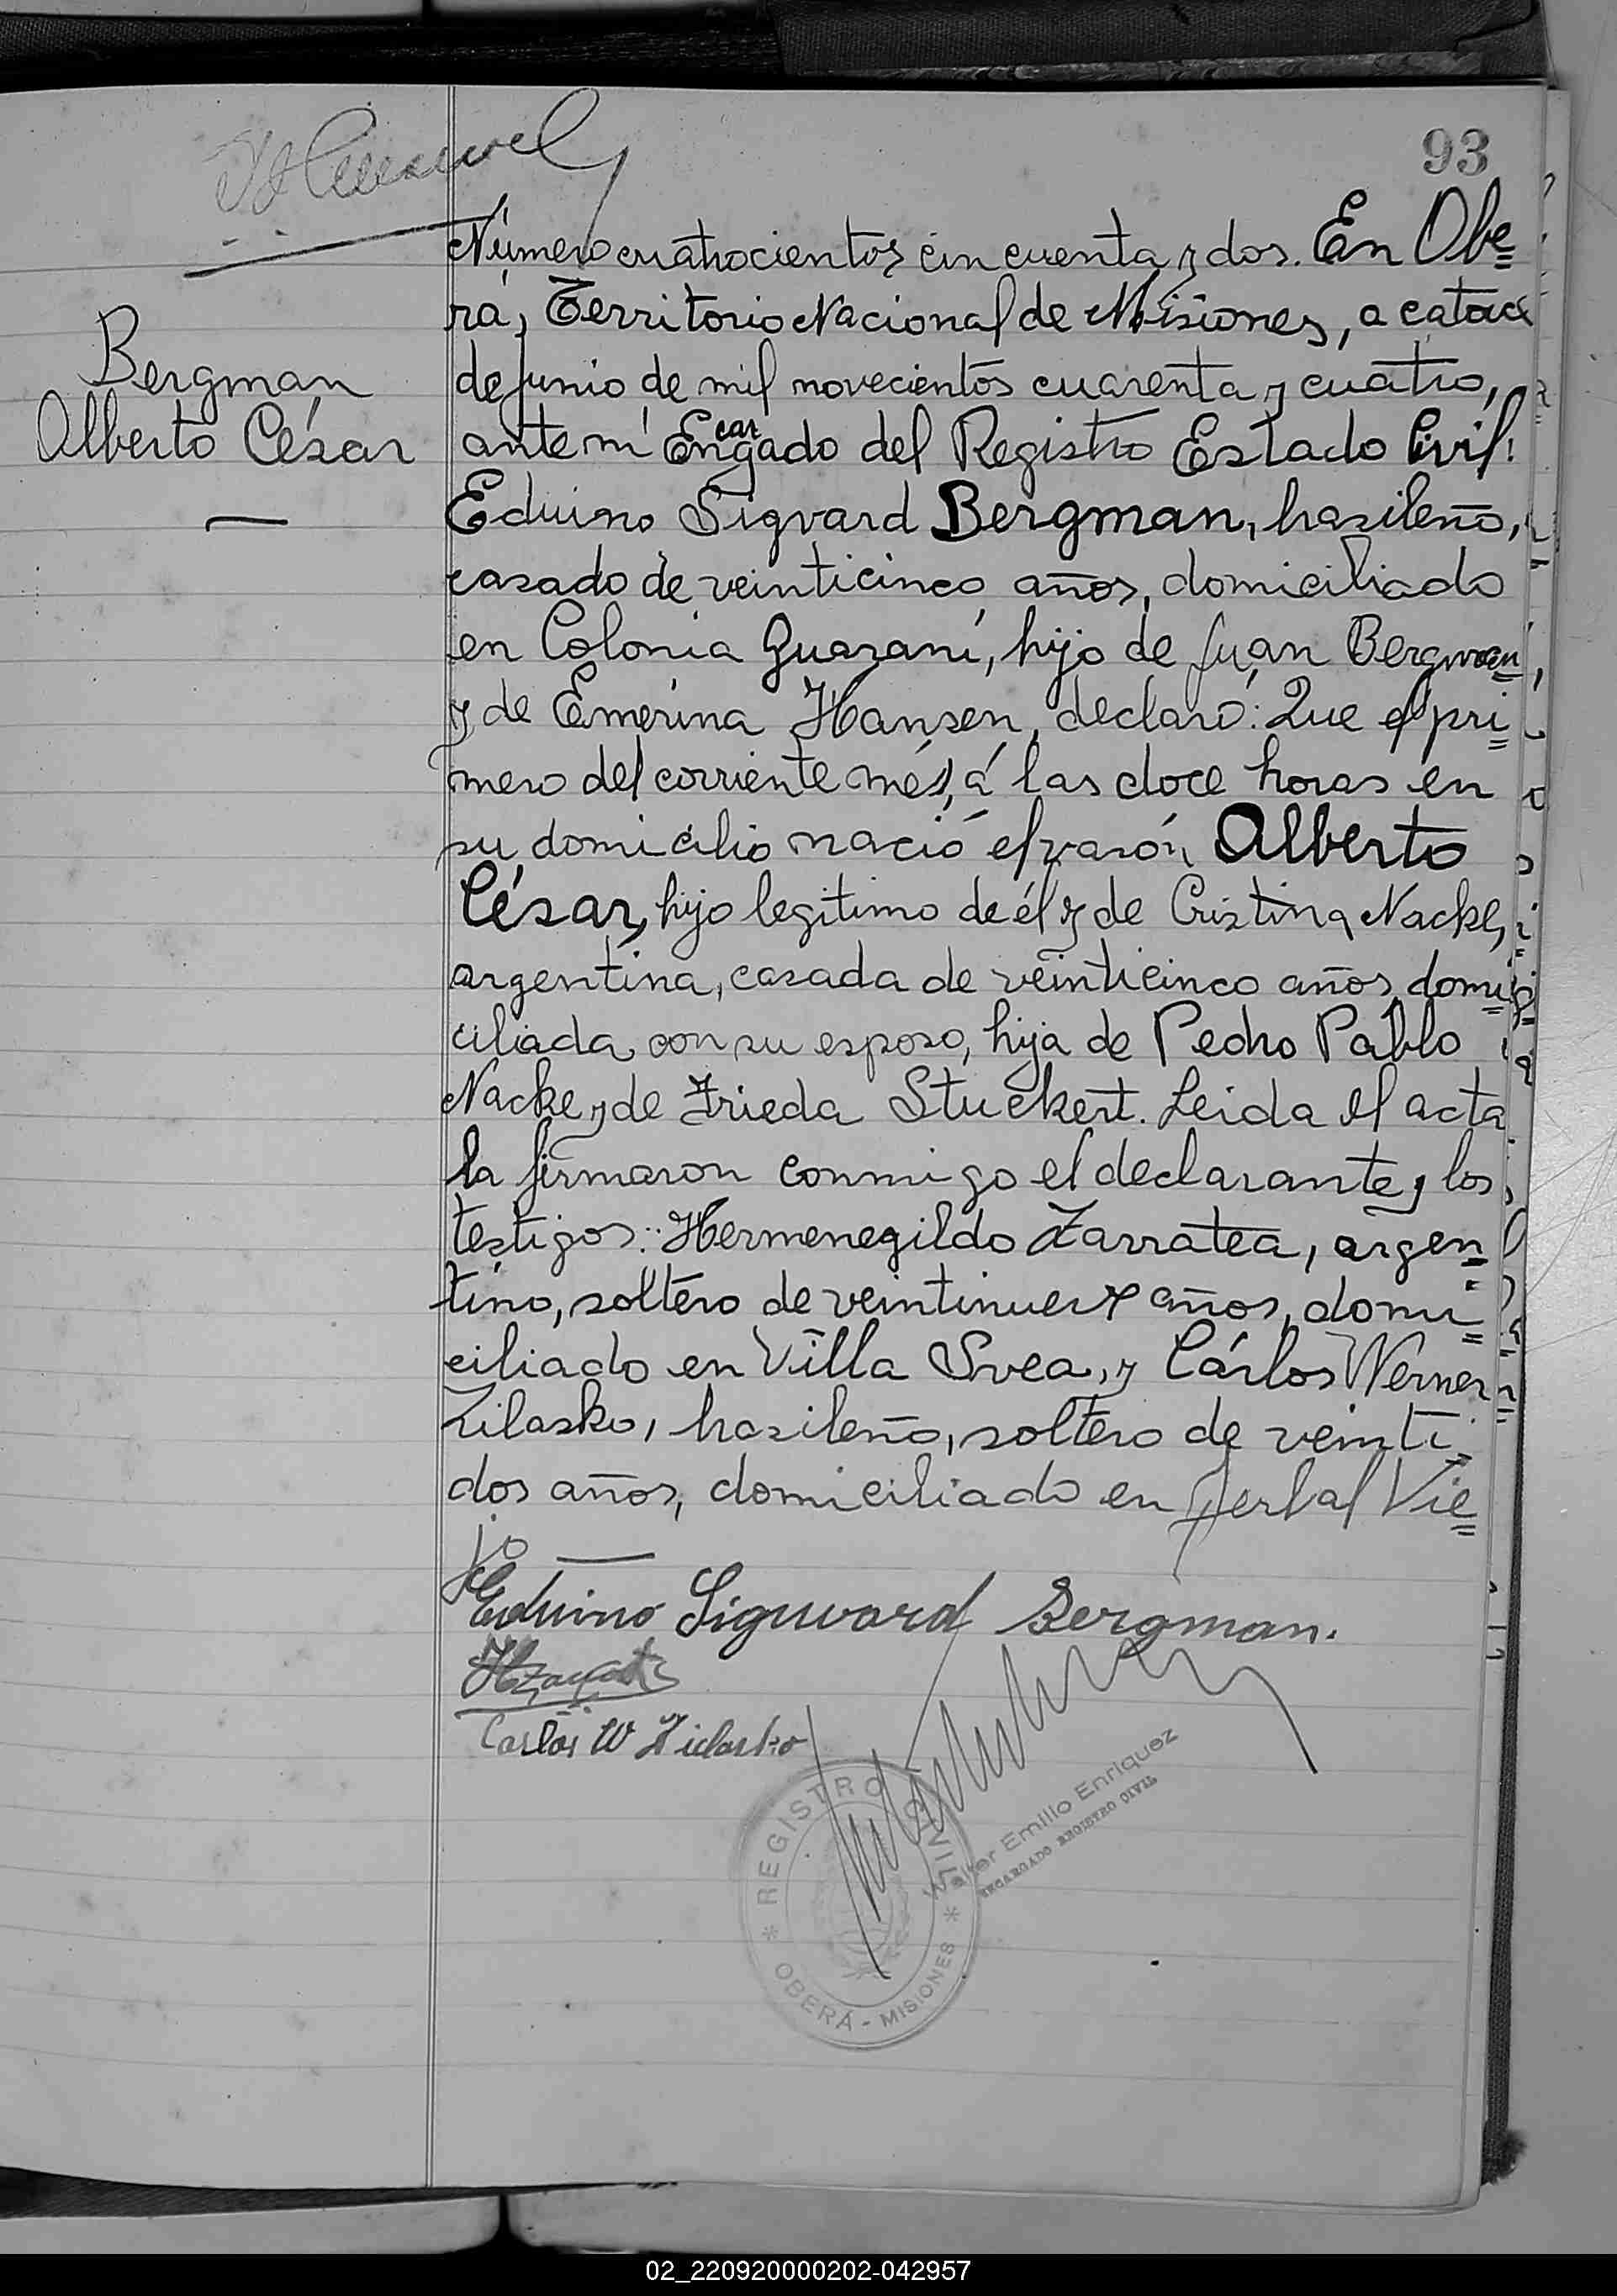 93
Número cuatrocientos cincuenta y dos. En Obe=
rá, Territorio Nacional de Misiones, a catorce
de junio de mil novecientos cuarenta y cuatro,
ante mí Encargado del Registro Estado Civil:
Bergman
Alberto César
Eduino Sigvard Bergman, brasileño,
casado de veinticinco años, domiciliado
en Colonia Guaraní, hijo de Juan Bergman
y de Emerina Hansen, declaró: Que el pri=
mero del corriente més, á las doce horas en
su domicilio nació el varón Alberto
César, hijo legitimo de él y de Cristina Nacke,
argentina, casada de veinticinco años, domi=
ciliada con su esposo, hija de Pedro Pablo
Nacke y de Frieda Stuckert. Leida el acta
la firmaron conmigo el declarante y los
testigos: Hermenegildo Zarratea, argen=
tino, soltero de veintinueve años, domi=
ciliado en Villa Svea, y Cárlos Werner
Zilasko, brasileño, soltero de veinti=
dos años, domiciliado en Yerbal Vie=
jo
Eduino Siguvard Bergman.
Carlos W Zilasko
Walter Emilio Enriquez
ENCARGADO REGISTRO CIVIL
* REGISTRO CIVIL *
OBERÁ - MISIONES
02_220920000202-042957